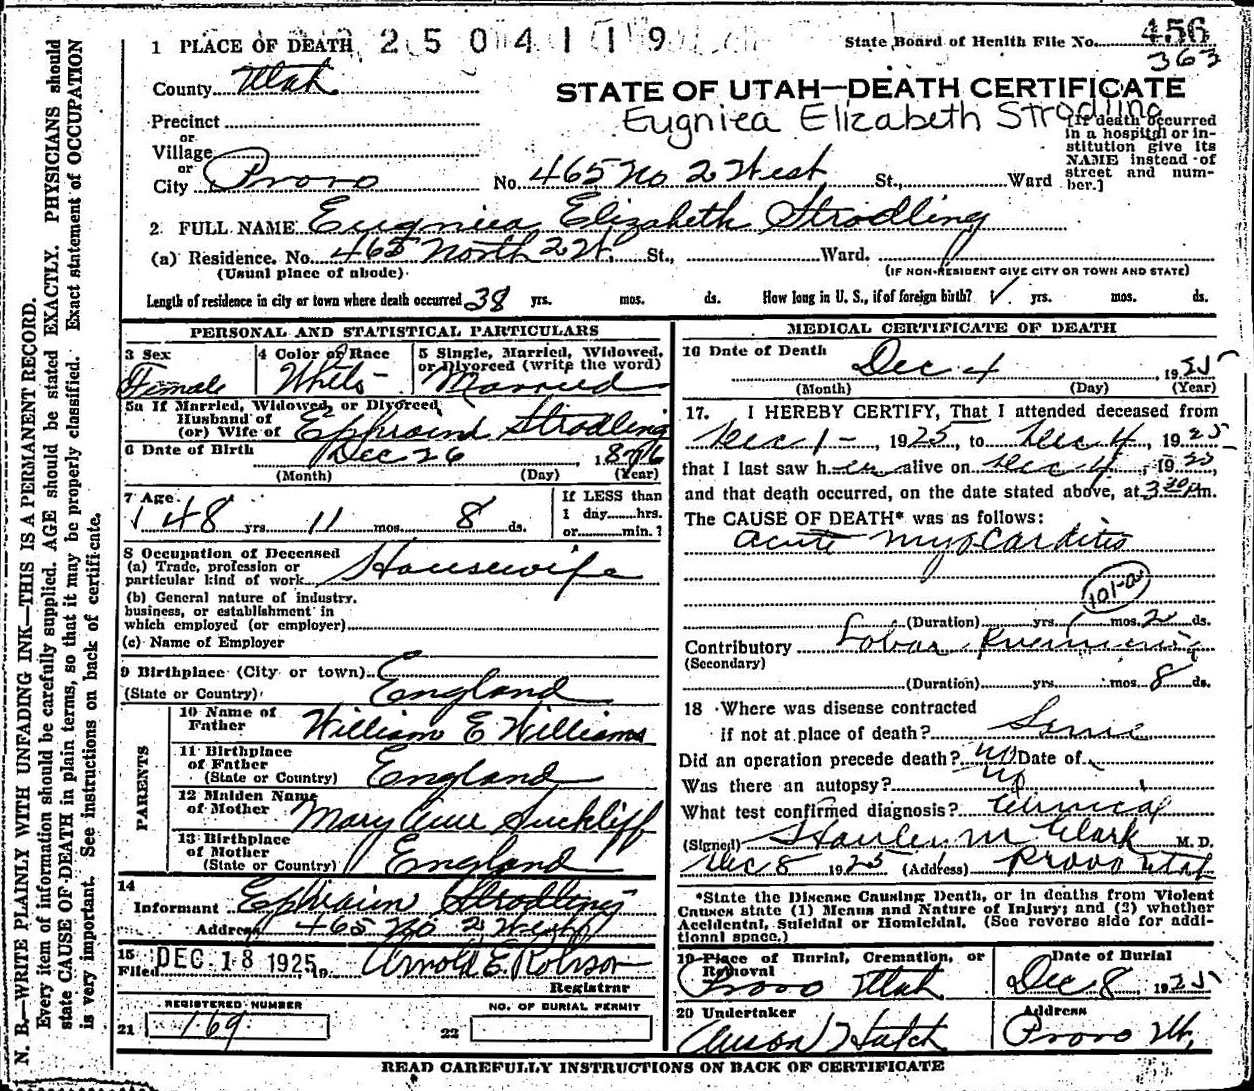 1 PLACE OF DEATH 2 5 0 4 1 1 9 State Board of Health File No. 456
363
County Utah
STATE OF UTAH—DEATH CERTIFICATE
Eugniea Elizabeth Strodling
Precinct
or
Village
or
City Provo No. 465 No 2 West St., Ward
[If death occurred
in a hospital or in-
stitution give its
NAME instead of
street and num-
ber.]
2 FULL NAME Eugniea Elizabeth Strodling
(a) Residence. No. 465 North 2 W. St., Ward.
(Usual place of abode) (IF NON-RESIDENT GIVE CITY OR TOWN AND STATE)
Length of residence in city or town where death occurred 38 yrs. mos. ds. How long in U. S., if of foreign birth? yrs. mos. ds.
PERSONAL AND STATISTICAL PARTICULARS
3 Sex 4 Color or Race 5 Single, Married, Widowed,
or Divorced (write the word)
Female White Married
5a If Married, Widowed, or Divorced,
Husband of
(or) Wife of Ephraim Strodling
6 Date of Birth Dec 26, 1876
(Month) (Day) (Year)
7 Age If LESS than
48 yrs. 11 mos. 8 ds. 1 day......hrs.
or......min.?
8 Occupation of Deceased
(a) Trade, profession or
particular kind of work Housewife
(b) General nature of industry,
business, or establishment in
which employed (or employer)
(c) Name of Employer
9 Birthplace (City or town)
(State or Country) England
PARENTS
10 Name of
Father William E Williams
11 Birthplace
of Father
(State or Country) England
12 Maiden Name
of Mother Mary Ann Suckliff
13 Birthplace
of Mother
(State or Country) England
14
Informant Ephraim Strodling
Address 465 No 2 West
15
Filed DEC 18 1925 19 Arnold E Robison
Registrar
REGISTERED NUMBER NO. OF BURIAL PERMIT
21 169 22
MEDICAL CERTIFICATE OF DEATH
16 Date of Death Dec 4 1925
(Month) (Day) (Year)
17. I HEREBY CERTIFY, That I attended deceased from
Dec 1, 1925, to Dec 4, 1925
that I last saw her alive on Dec 4, 1925,
and that death occurred, on the date stated above, at 3 30 p m.
The CAUSE OF DEATH* was as follows:
acute myocarditis
101-a
(Duration) yrs. mos. 2 ds.
Contributory Lobar Pneumonia
(Secondary)
(Duration) yrs. mos. 8 ds.
18 Where was disease contracted
if not at place of death? Same
Did an operation precede death? no Date of
Was there an autopsy? no
What test confirmed diagnosis? Clinical
(Signed) Stanley M Clark M. D.
Dec 8 1925 (Address) Provo Utah
*State the Disease Causing Death, or in deaths from Violent
Causes state (1) Means and Nature of Injury; and (2) whether
Accidental, Suicidal or Homicidal. (See reverse side for addi-
tional space.)
19 Place of Burial, Cremation, or Date of Burial
Removal
Provo Utah Dec 8, 1925
20 Undertaker Address
Anson Hatch Provo Ut.
READ CAREFULLY INSTRUCTIONS ON BACK OF CERTIFICATE
N. B.—WRITE PLAINLY WITH UNFADING INK—THIS IS A PERMANENT RECORD.
Every item of information should be carefully supplied. AGE should be stated EXACTLY. PHYSICIANS should
state CAUSE OF DEATH in plain terms, so that it may be properly classified. Exact statement of OCCUPATION
is very important. See instructions on back of certificate.